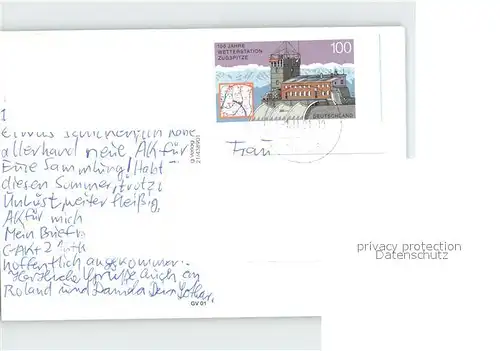 100 JAHRE
WETTERSTATION
ZUGSPITZE
100
DEUTSCHLAND
1
habe
allerhand neue AK für
Eure Sammlung! Habt
diesen Sommer, trotz
Unlust, weiter fleißig
AK für mich
Mein Brief
hoffentlich angekommen.
Herzliche Grüße auch an
Roland und Daniela Dein Lothar.
Frau
GV 01
privacy protection
Datenschutz